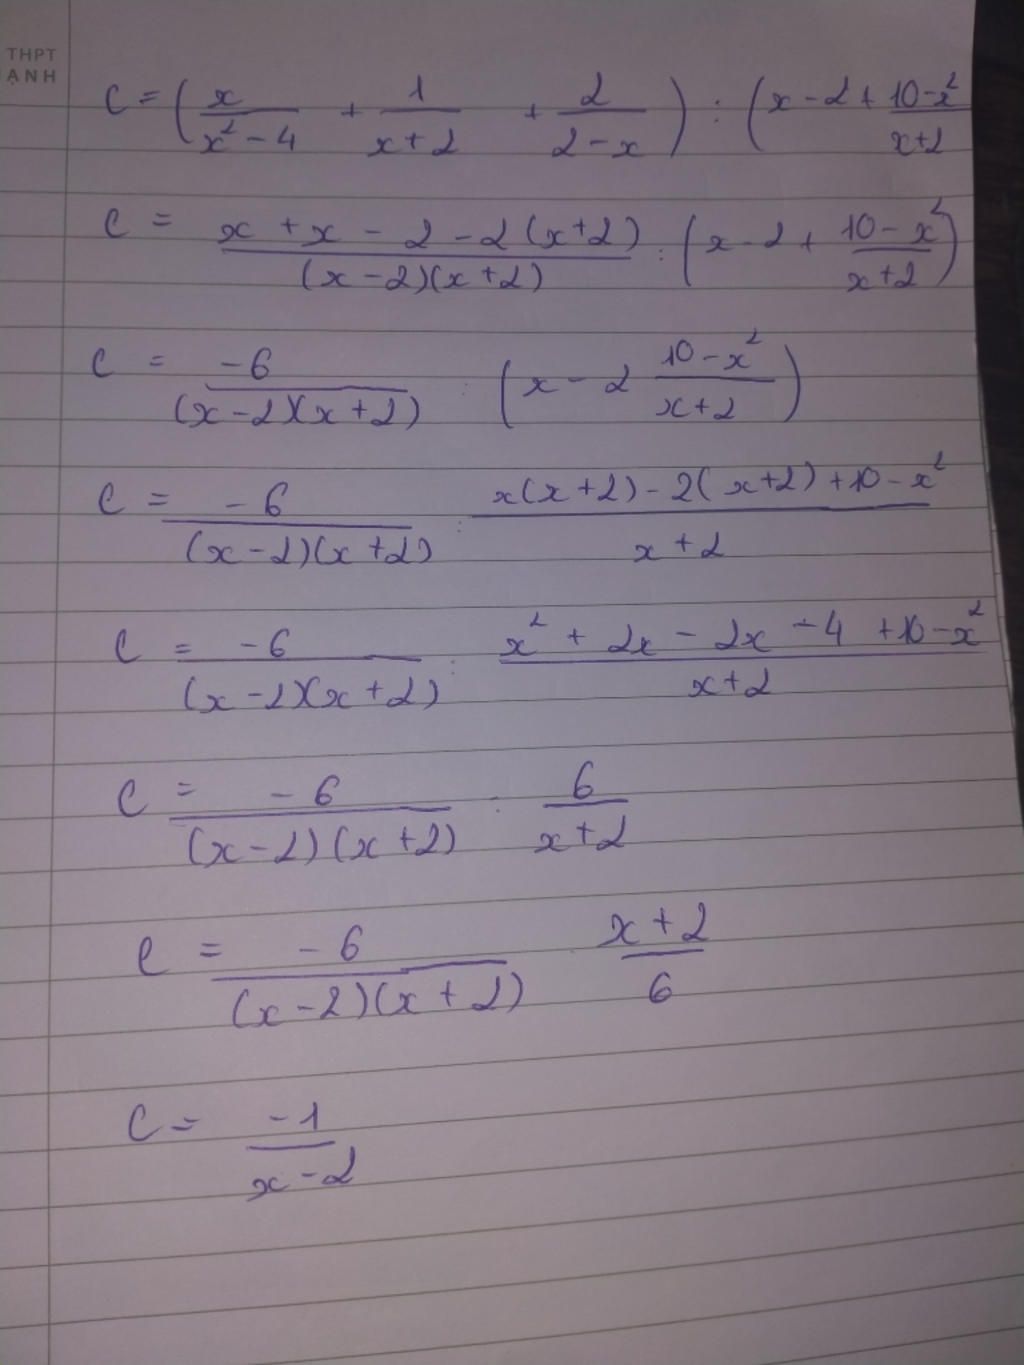 THPT
ẠNH
C = ( x/(x² - 4) + 1/(x+2) + 2/(2-x) ) : ( x - 2 + (10-x²)/(x+2)
C = (x + x - 2 - 2(x+2))/((x-2)(x+2)) : ( x - 2 + (10 - x²)/(x+2) )
C = -6/((x-2)(x+2)) : ( x - 2 (10-x²)/(x+2) )
C = -6/((x-2)(x+2)) : (x(x+2) - 2(x+2) + 10 - x²)/(x+2)
C = -6/((x-2)(x+2)) : (x² + 2x - 2x - 4 + 10 - x²)/(x+2)
C = -6/((x-2)(x+2)) : 6/(x+2)
C = -6/((x-2)(x+2)) . (x+2)/6
C = -1/(x-2)